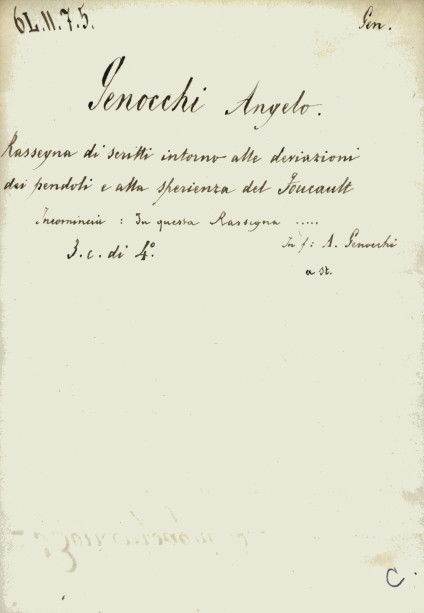 6L.11.7.5.
Gen.
Genocchi Angelo.
Rassegna di scritti intorno alle deviazioni
dei pendoli e alla sperienza del Foucault
Incomincia : In questa Rassegna .....
3. c. di 4º
In f: A. Genocchi
a st.
C.